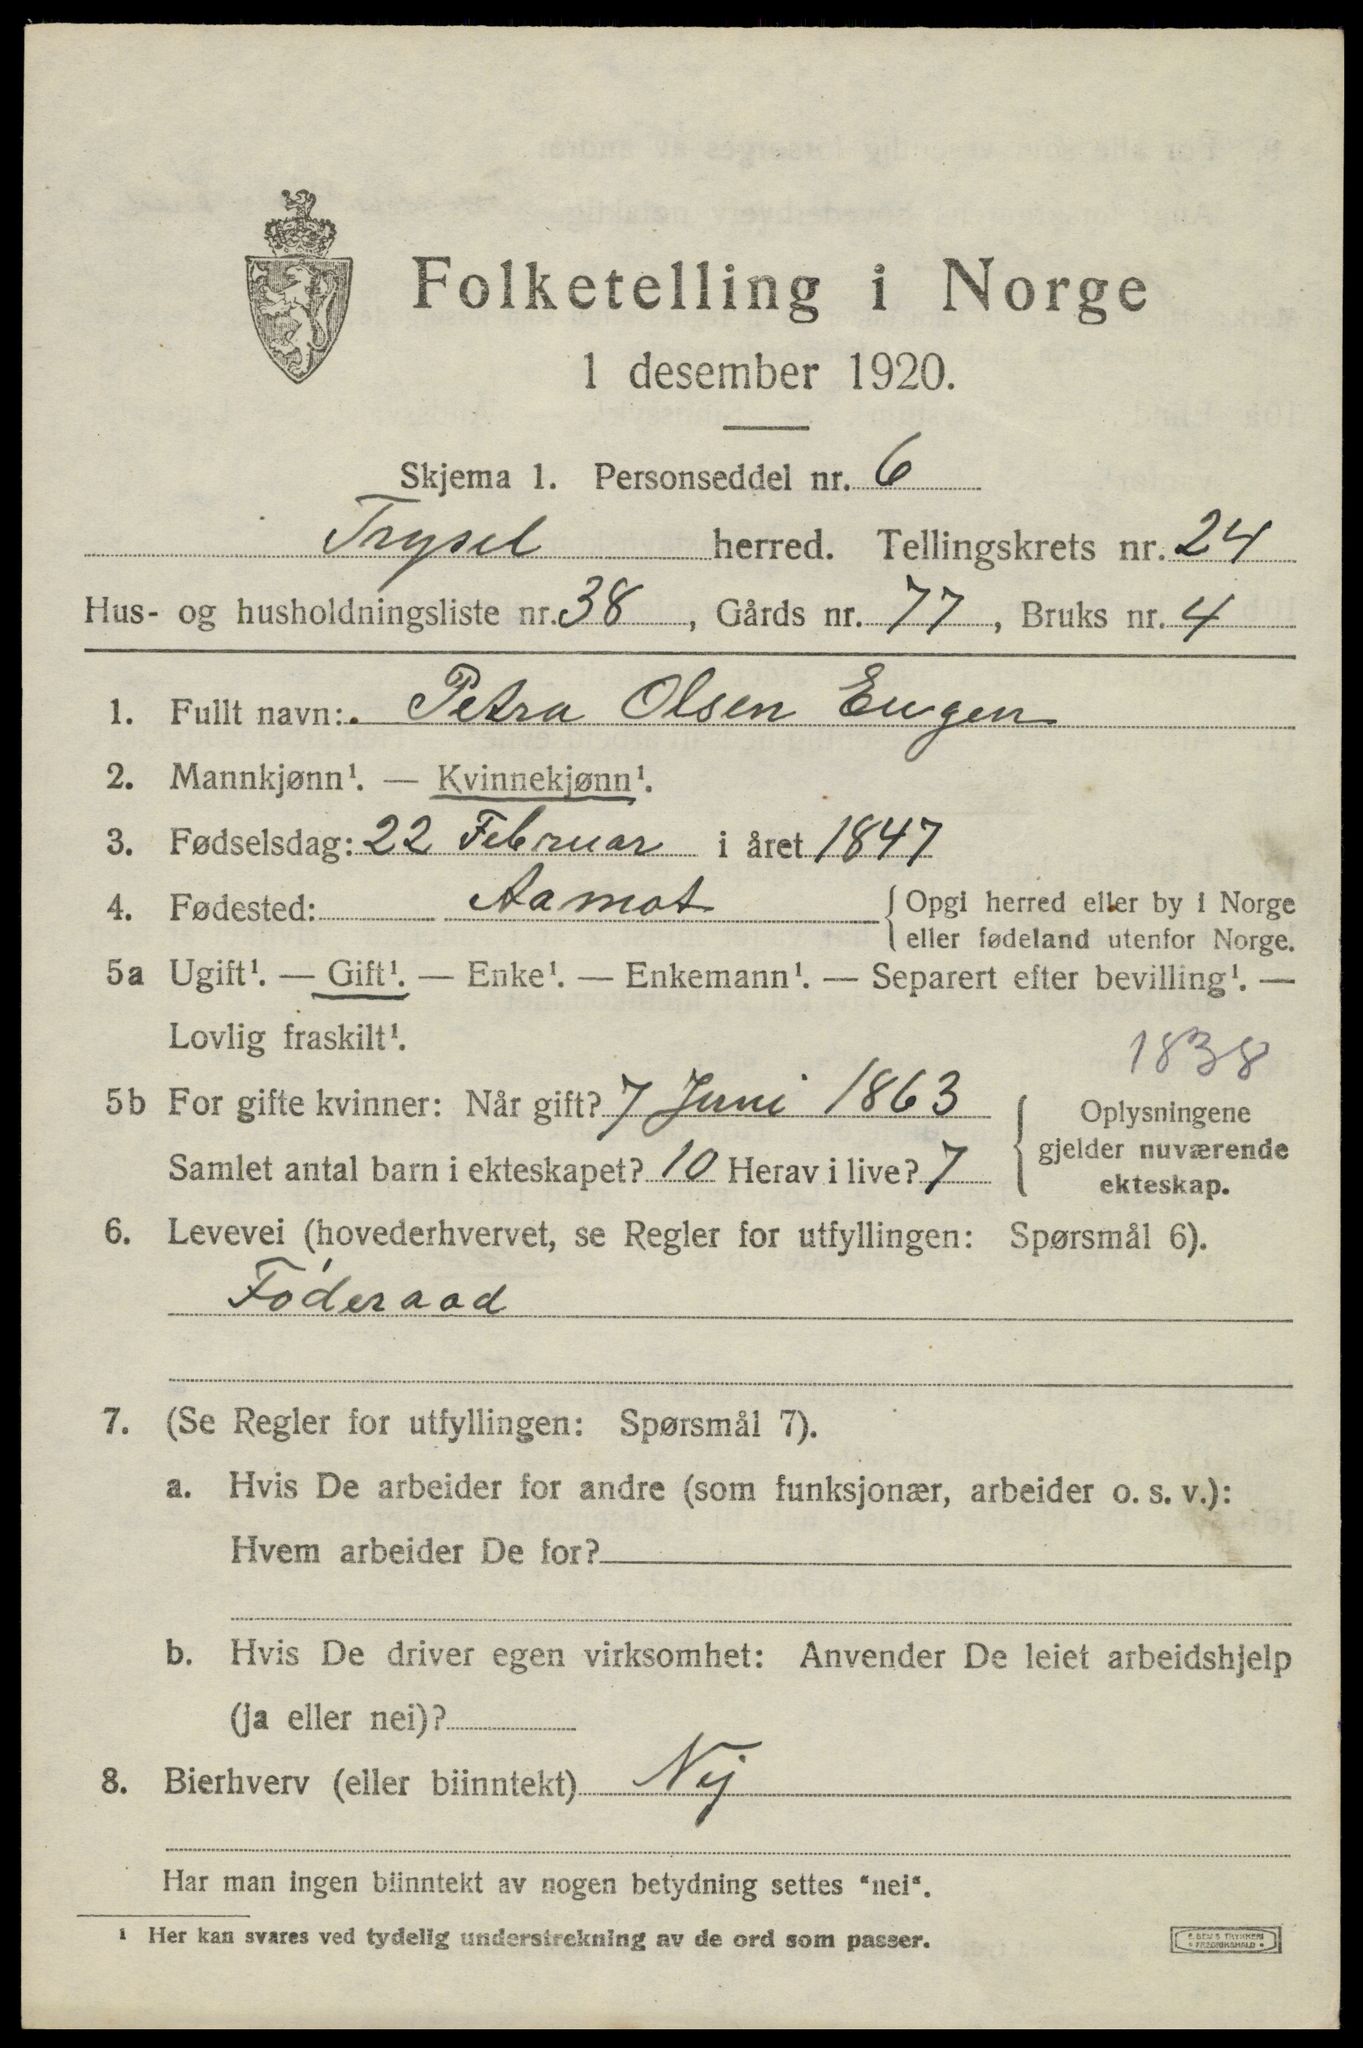 Folketelling i Norge
1 desember 1920.
Skjema 1. Personseddel nr. 6
Trysil herred. Tellingskrets nr. 24
Hus- og husholdningsliste nr. 38, Gårds nr. 77, Bruks nr. 4
1. Fullt navn: Petra Olsen Eugen
2. Mannkjønn¹. — Kvinnekjønn¹.
3. Fødselsdag: 22 Februar i året 1847
4. Fødested: Aamot {Opgi herred eller by i Norge
eller fødeland utenfor Norge.
5a Ugift¹. — Gift¹. — Enke¹. — Enkemann¹. — Separert efter bevilling¹. —
Lovlig fraskilt¹.
1838
5b For gifte kvinner: Når gift? 7 Juni 1863
Samlet antal barn i ekteskapet? 10 Herav i live? 7
{Oplysningene
gjelder nuværende
ekteskap.
6. Levevei (hovederhvervet, se Regler for utfyllingen: Spørsmål 6).
Føderaad
7. (Se Regler for utfyllingen: Spørsmål 7).
a. Hvis De arbeider for andre (som funksjonær, arbeider o. s. v.):
Hvem arbeider De for?
b. Hvis De driver egen virksomhet: Anvender De leiet arbeidshjelp
(ja eller nei)?
8. Bierhverv (eller biinntekt) Nej
Har man ingen biinntekt av nogen betydning settes "nei".
¹ Her kan svares ved tydelig understrekning av de ord som passer.